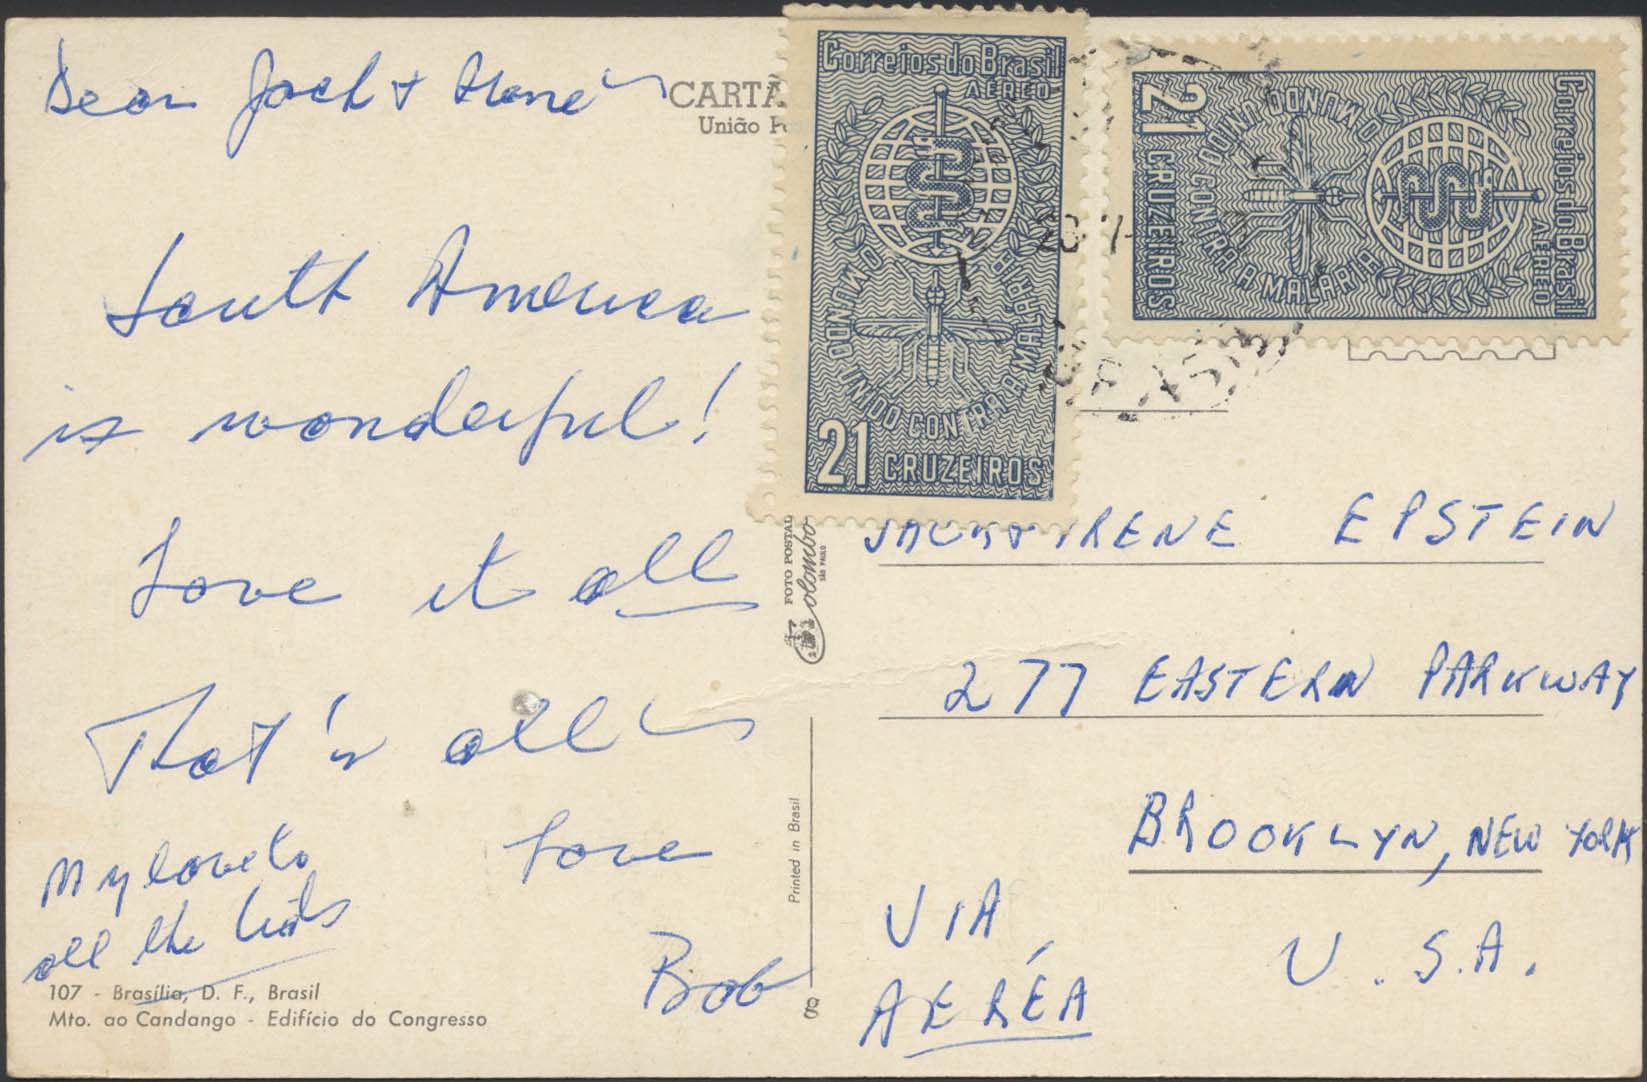 Dear Jack & Irene –
South America
is wonderful!
Love it all
That's all –
Love
My love to
all the kids
Bob
107 - Brasília, D. F., Brasil
Mto. ao Candango - Edifício do Congresso
CARTÃ
União P
Correios do Brasil
AÉREO
O MUNDO UNIDO CONTRA A MALARIA
21 CRUZEIROS
Correios do Brasil
AÉREO
O MUNDO UNIDO CONTRA A MALARIA
21 CRUZEIROS
20 7
FOTO POSTAL
Colombo
SÃO PAULO
Printed in Brasil
JACK & IRENE EPSTEIN
277 EASTERN PARKWAY
BROOKLYN, NEW YORK
U.S.A.
VIA
AEREA